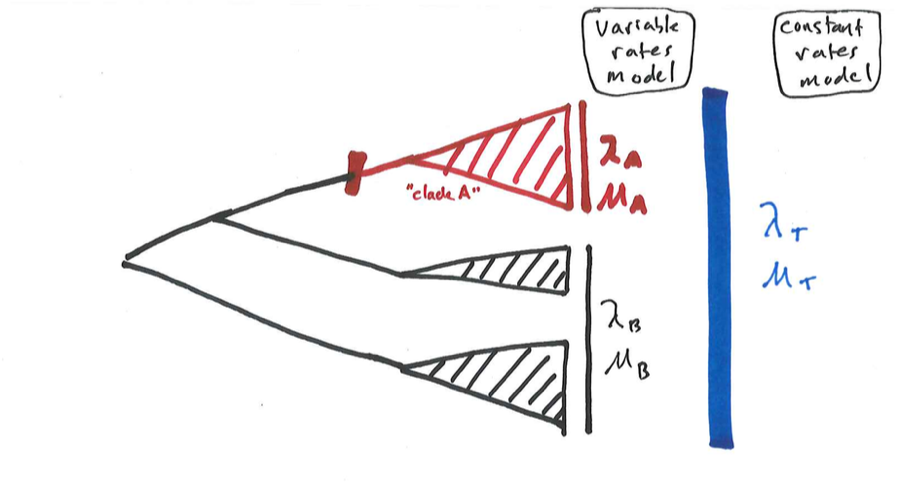 Variable
rates
model
constant
rates
model
"clade A"
λA
μA
λB
μB
λT
μT